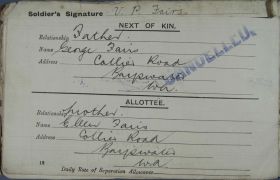 Soldier's Signature V. P. Fairs
NEXT OF KIN.
Relationship Father
Name George Fairs
Address Collier Road
Bayswater
W.A.
CANCELLED.
ALLOTTEE.
Relationship Mother
Name Ellen Fairs
Address Collier Road
Bayswater
W.A.
18
Daily Rate of Separation Allowance